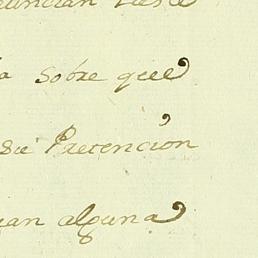 a sobre que
su Pretencion
uan alguna